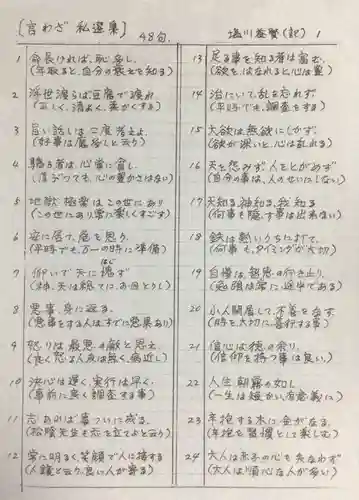 [言わざ 私選集] 48句.
塩川 (記) 1
1 命長ければ、恥多し.
(年取ると、自分の衰えを知る)
2 浮世渡らば豆腐で渡れ.
(正しく、清よく、柔かくする)
3 旨い話しは二度考えよ.
(好事は魔多しと云う)
4 驕る者は、心常に貧し.
(心の豊かさはない)
5 地獄極楽はこの世にあり
(この世にあり常に楽しくすごす)
6 安に居て、危を思う.
(平時でも、万一の時に準備)
7 仰いで天に愧ず
はじ
(神、天は総てに、お目とうし)
8 悪事、身に返る.
(悪事をする人は、すでに悪累あり)
9 怒りは最悪の敵と思え.
(良く怒る人夜は無く、病近し)
10 決心は遅く、実行は早く.
(事前に良く調査する事)
11 志あれば事ついに成る.
(松陰先生も志を立てよと云う)
12 常に明るく、笑顔で人に接する
(人鏡と云う、良い人が寄る)
13 足る事を知る者は富む.
(欲を、はなれると、心は豊)
14 治にいて、乱を忘れず
(平時でも、調査をする)
15 大欲は無欲にしかず.
(欲が深いと、心は乱れる)
16 天を怨みず、人をとがめず
(自分の事は、人のせいにしない)
17 天知る、神知る、我知る
(何事も隠す事は出来ない)
18 鉄は熱いうちに打て.
(何事も、タイミングが大切)
19 自慢は、知恵の行き止り.
(勉強は常に途中である)
20 小人閑居して、不善を為す.
(時を大切に善行する事)
21 信心は徳の余り.
(信仰を持つ事は良い)
22 人生朝霧の如し.
(一生は短かい、有意義に)
23 年抱する木に金がなる.
(年抱を習慣として楽しむ)
24 大人は赤子の心を失なわず
(大人は順心な人が多い)